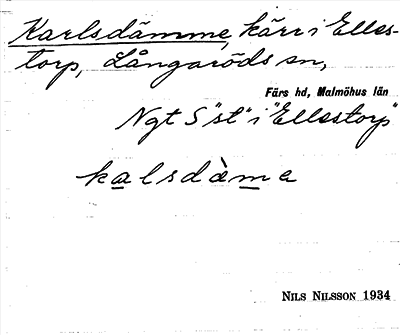 Karlsdämme, kärr i Elles-
torp, Långaröds sn,
Färs hd, Malmöhus län
Ngt S "st" i "Ellestorp"
kalsdàme
NILS NILSSON 1934